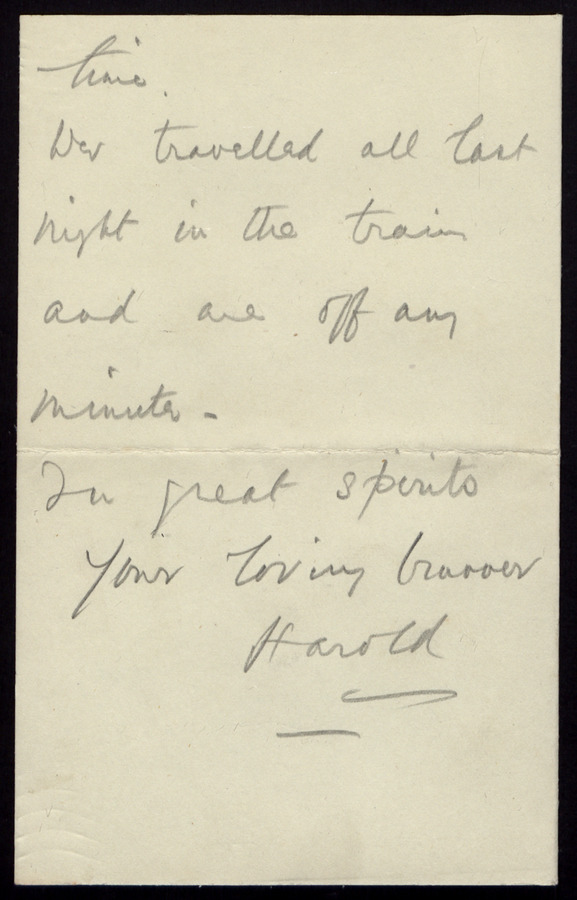 time.
We travelled all last
night in the train
and are off any
minute -
In great spirits
Your loving bruvver
Harold